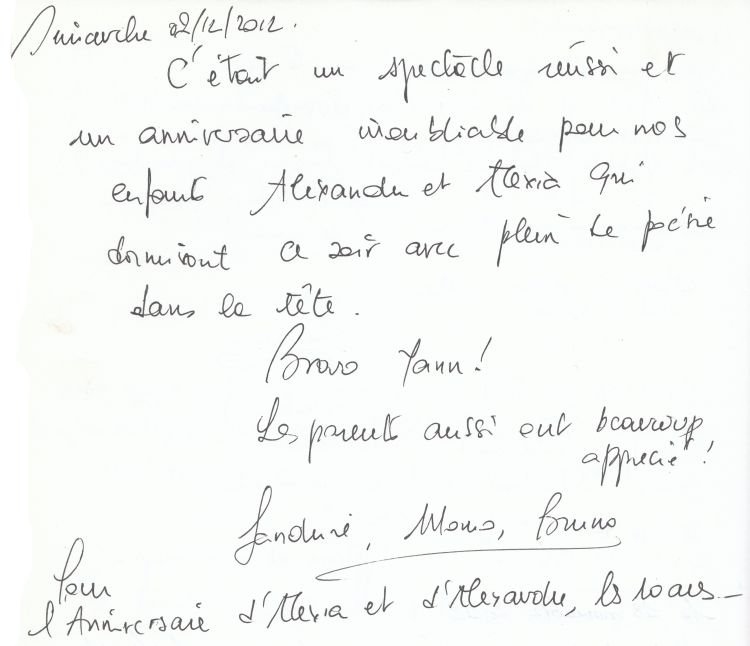 Dimanche 02/12/2012.
C'était un spectacle réussi et
un anniversaire inoubliable pour nos
enfants Alexandre et Alexia qui
dormiront ce soir avec plein de poésie
dans la tête.
Bravo Yann!
Les parents aussi ont beaucoup
apprecié!
Sandrine, Momo, Bruno
Pour
l'Anniversaire d'Alexia et d'Alexandre, les 10 ans_